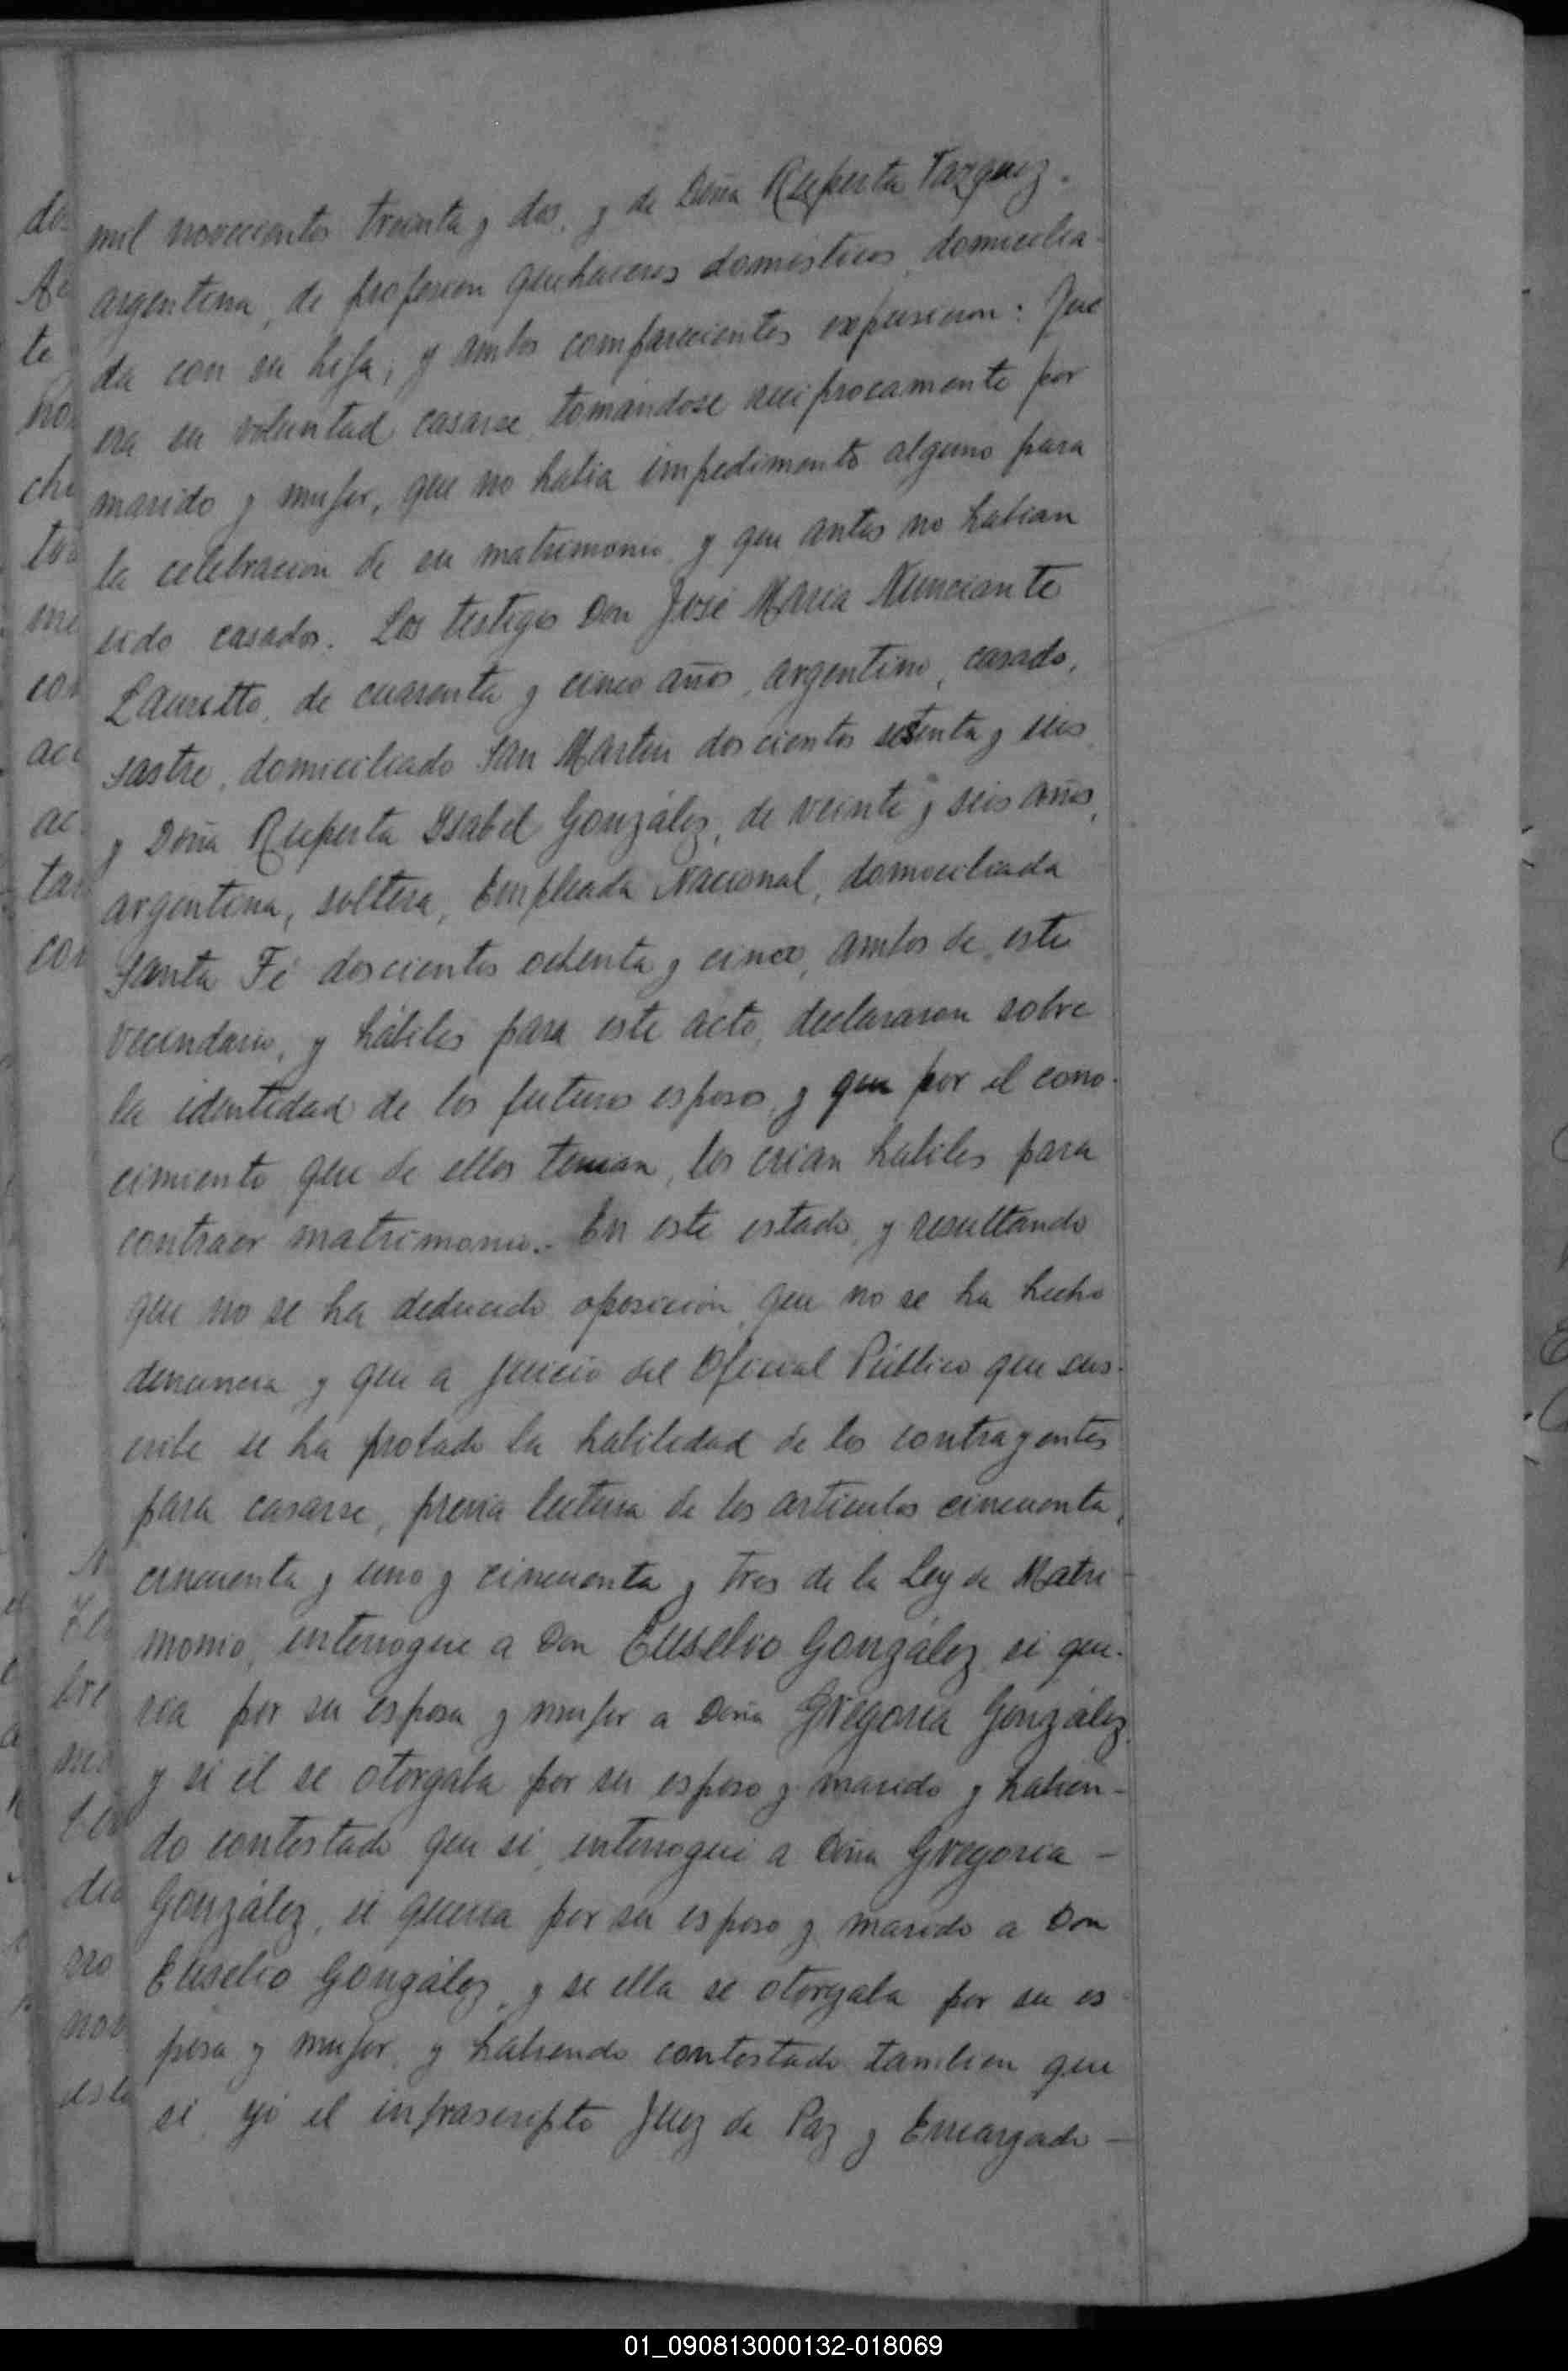 mil novecientos treinta y dos, y de Doña Ruperta Vazquez.
argentina, de profesion quehaceres domésticos, domicilia-
da con su hija; y ambos comparecientes expusieron: Que
era su voluntad casarse, tomandose reciprocamente por
marido y mujer, que no habia impedimento alguno para
la celebracion de su matrimonio y que antes no habian
sido casados. Los testigos Don José Maria Nunciante
Lauritto, de cuarenta y cinco años, argentino, casado,
sastre, domiciliado San Martin doscientos setenta y seis
y Doña Ruperta Isabel González, de veinte y seis años,
argentina, soltera, Empleada Nacional, domiciliada
Santa Fé doscientos ochenta y cinco, ambos de este
vecindario, y hábiles para este acto, declararon sobre
la identidad de los futuros esposos, y que por el cono-
cimiento que de ellos tenian, los creian habiles para
contraer matrimonio.- En este estado, y resultando
que no se ha deducido oposicion, que no se ha hecho
denuncia y que a juicio del Oficial Público que sus-
cribe se ha probado la habilidad de los contrayentes
para casarse, previa lectura de los articulos cincuenta,
cincuenta y uno y cincuenta y tres de la Ley de Matri-
monio, interrogue a Don Eusebio González, si que-
ria por su esposa y mujer a Doña Gregoria González,
y si él se otorgaba por su esposo y marido y habien-
do contestado que si, interrogué a Doña Gregoria -
González, si queria por su esposo y marido a Don
Eusebio González, y si ella se otorgaba por su es
posa y mujer, y habiendo contestado tambien que
si, yo el infrascripto Juez de Paz y Encargado -
01_090813000132-018069